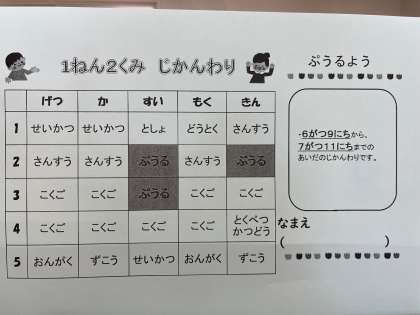 1ねん2くみ じかんわり
げつ か すい もく きん
1 せいかつ せいかつ としょ どうとく さんすう
2 さんすう さんすう ぷうる さんすう ぷうる
3 こくご こくご ぷうる こくご こくご
4 こくご こくご こくご こくご とくべつ
かつどう
5 おんがく ずこう せいかつ おんがく ずこう
ぷうるよう
・6がつ9にちから、
7がつ11にちまでの
あいだのじかんわりです。
なまえ
( )